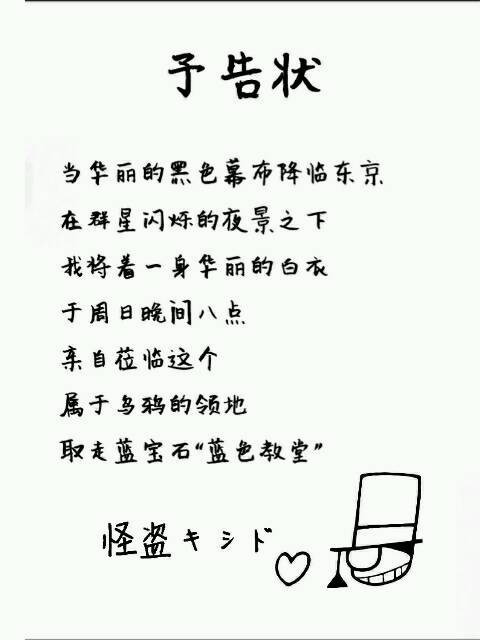 予告状
当华丽的黑色幕布降临东京
在群星闪烁的夜景之下
我将着一身华丽的白衣
于周日晚间八点
亲自莅临这个
属于乌鸦的领地
取走蓝宝石“蓝色教堂”
怪盗キシド